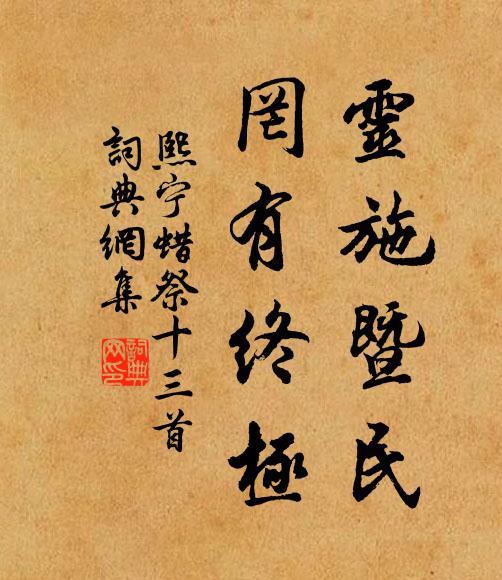 靈施暨民
罔有終極
熙宁蜡祭十三首
詞典網集
詞典
网印